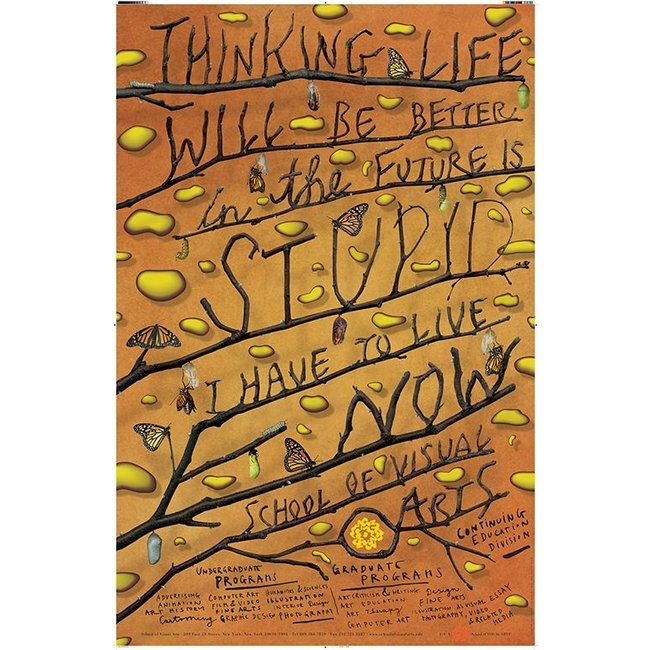 THINKING LIFE
WILL BE BETTER
in the FUTURE IS
STUPID
I HAVE TO LIVE
NOW
SCHOOL OF VISUAL
ARTS
CONTINUING
EDUCATION
DIVISION
UNDERGRADUATE
PROGRAMS
ADVERTISING COMPUTER ART HUMANITIES & SCIENCES
ANIMATION FILM & VIDEO ILLUSTRATION
ART HISTORY FINE ARTS INTERIOR Design
Cartooning GRAPHIC DESIGN PHOTOGRAPHY
GRADUATE
PROGRAMS
ART CRITICISM & WRITING Design
ART EDUCATION FINE ARTS
ART Therapy ILLUSTRATION AS VISUAL ESSAY
COMPUTER ART PHOTOGRAPHY, VIDEO
& RELATED
MEDIA